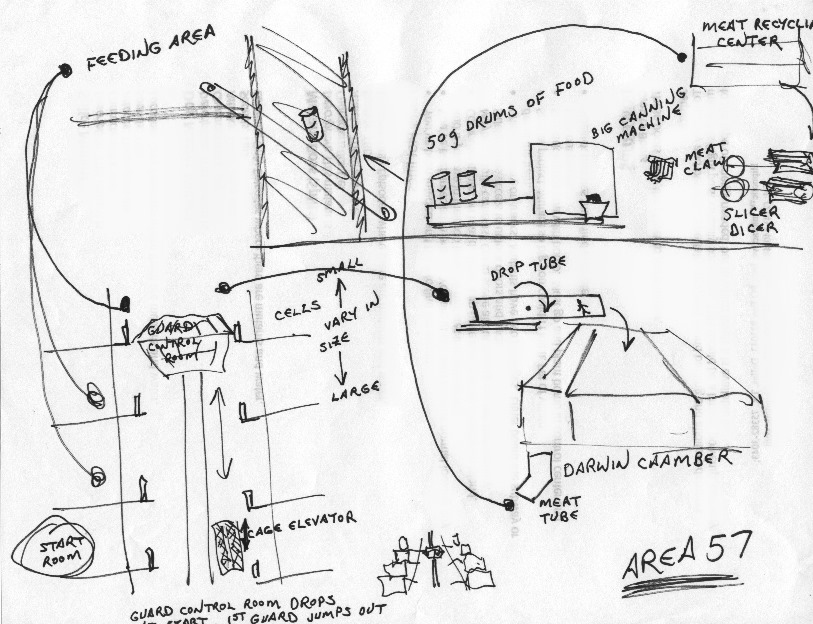 FEEDING AREA
MEAT RECYCLIN
CENTER
50g DRUMS OF FOOD
BIG CANNING
MACHINE
MEAT
CLAW
SLICER
DICER
SMALL
CELLS VARY IN
SIZE
LARGE
DROP TUBE
GUARD
CONTROL
ROOM
DARWIN CHAMBER
MEAT
TUBE
CAGE ELEVATOR
START
ROOM
AREA 57
GUARD CONTROL ROOM DROPS
AT START 1ST GUARD JUMPS OUT